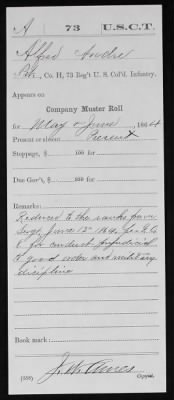 A 73 U.S.C.T.
Alfred Andre
Pvt., Co. H, 73 Reg't U. S. Col'd. Infantry.
Appears on
Company Muster Roll
for May & June, 1864
Present or absent Present
Stoppage, $ 100 for
Due Gov't, $ 100 for
Remarks:
Reduced to the ranks from
Sergt. June 12" 1864, G.O.
6 for conduct prejudicial
to good order and military
discipline
Book mark:
J. W. Ames
(358) Copyist.